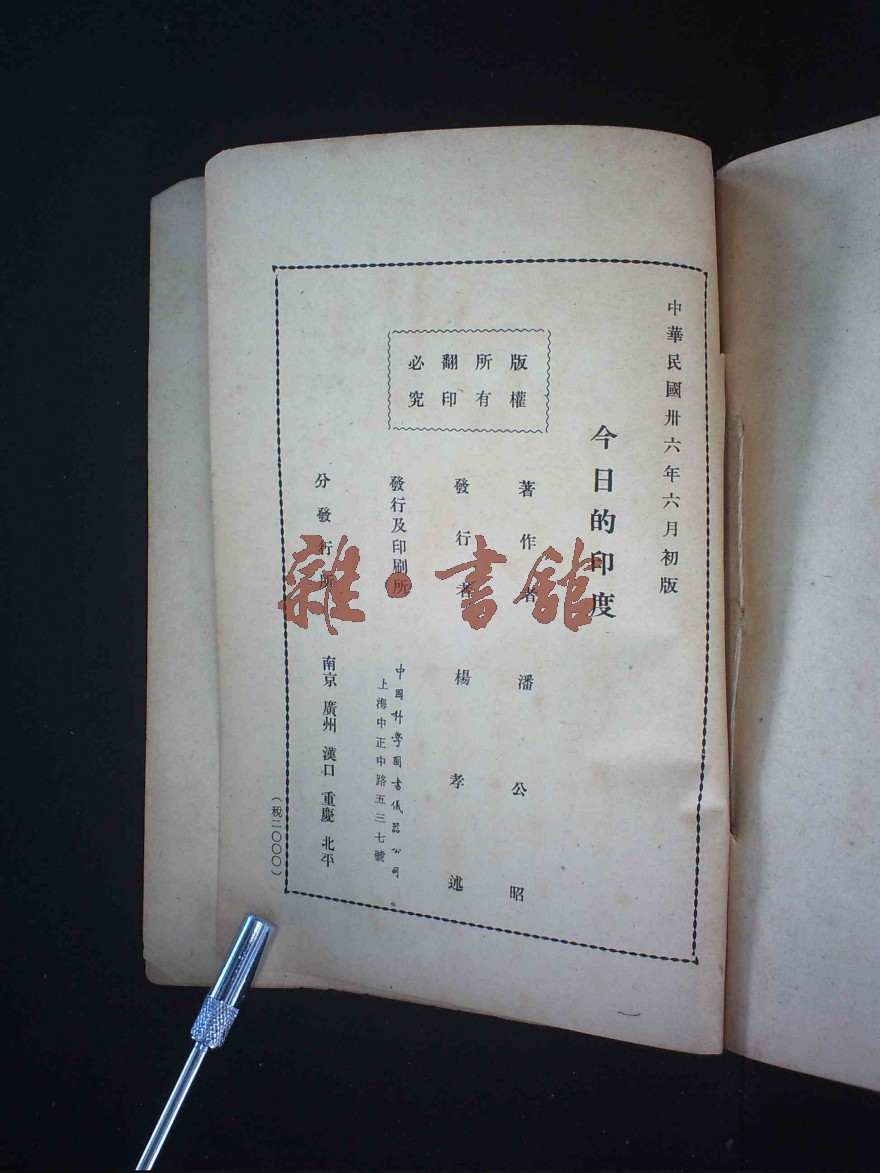 中華民國卅六年六月初版
今日的印度
版權
所有
翻印
必究
著作者 潘公昭
發行者 楊孝述
發行及印刷所 中國科學圖書儀器公司
上海中正中路五三七號
分發行所 南京 廣州 漢口 重慶 北平
(税二〇〇〇)
雜·書館